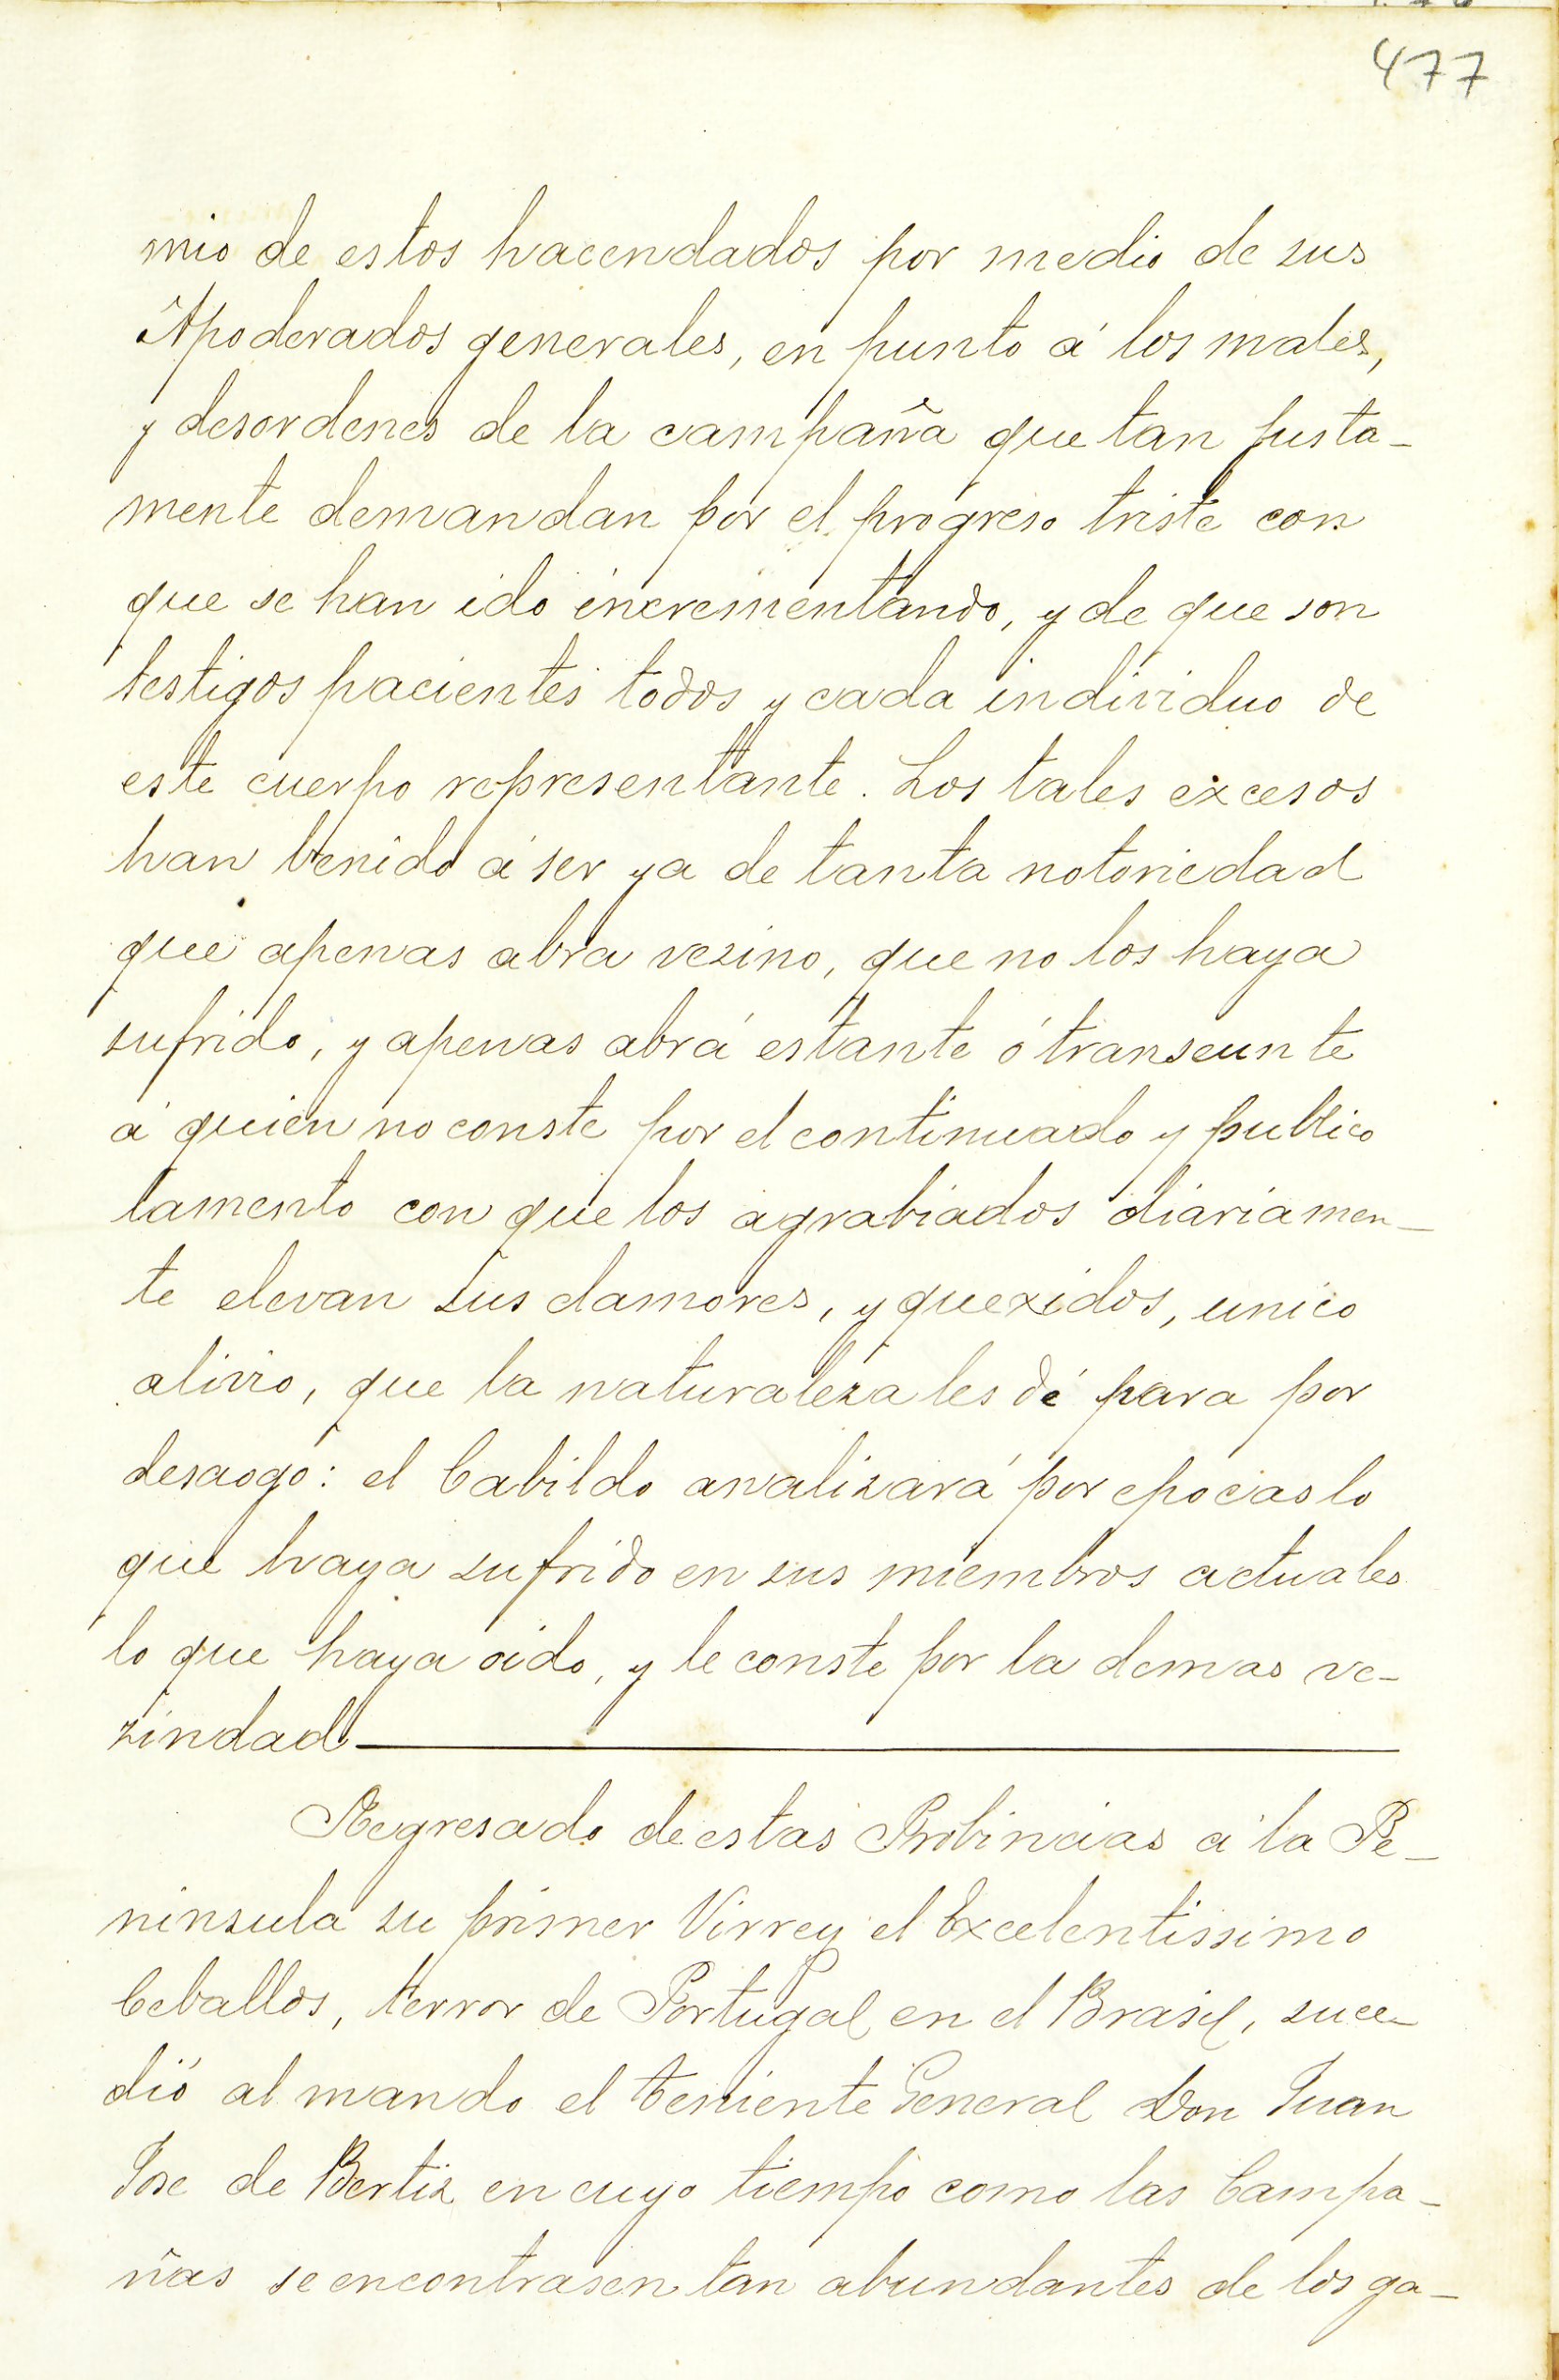 477
mio de estos hacendados por medio de sus
Apoderados generales, en punto á los males,
y desordenes de la campaña que tan justa-
mente demandan por el progreso triste con
que se han ido incrementando, y de que son
testigos pacientes todos y cada individuo de
este cuerpo representante. Los tales excesos
han benido á ser ya de tanta notoriedad
que apenas abra vezino, que no los haya
sufrido, y apenas abrá estante ó transeunte
á quien no conste por el continuado y publico
lamento con que los agrabiados diariamen-
te elevan sus clamores, y quexidos, unico
alivio, que la naturaleza les dé para por
desaogo: el Cabildo analizará por epocas lo
que haya sufrido en sus miembros actuales
lo que haya oido, y le conste por la demas ve-
zindad
Regresado de estas Probincias á la Pe-
ninsula su primer Virrey el Excelentissimo
Ceballos, terror de Portugal en el Brasil, suce-
dió al mando el teniente General Don Juan
Jose de Bertiz en cuyo tiempo como las Campa-
ñas se encontrasen tan abundantes de los ga-